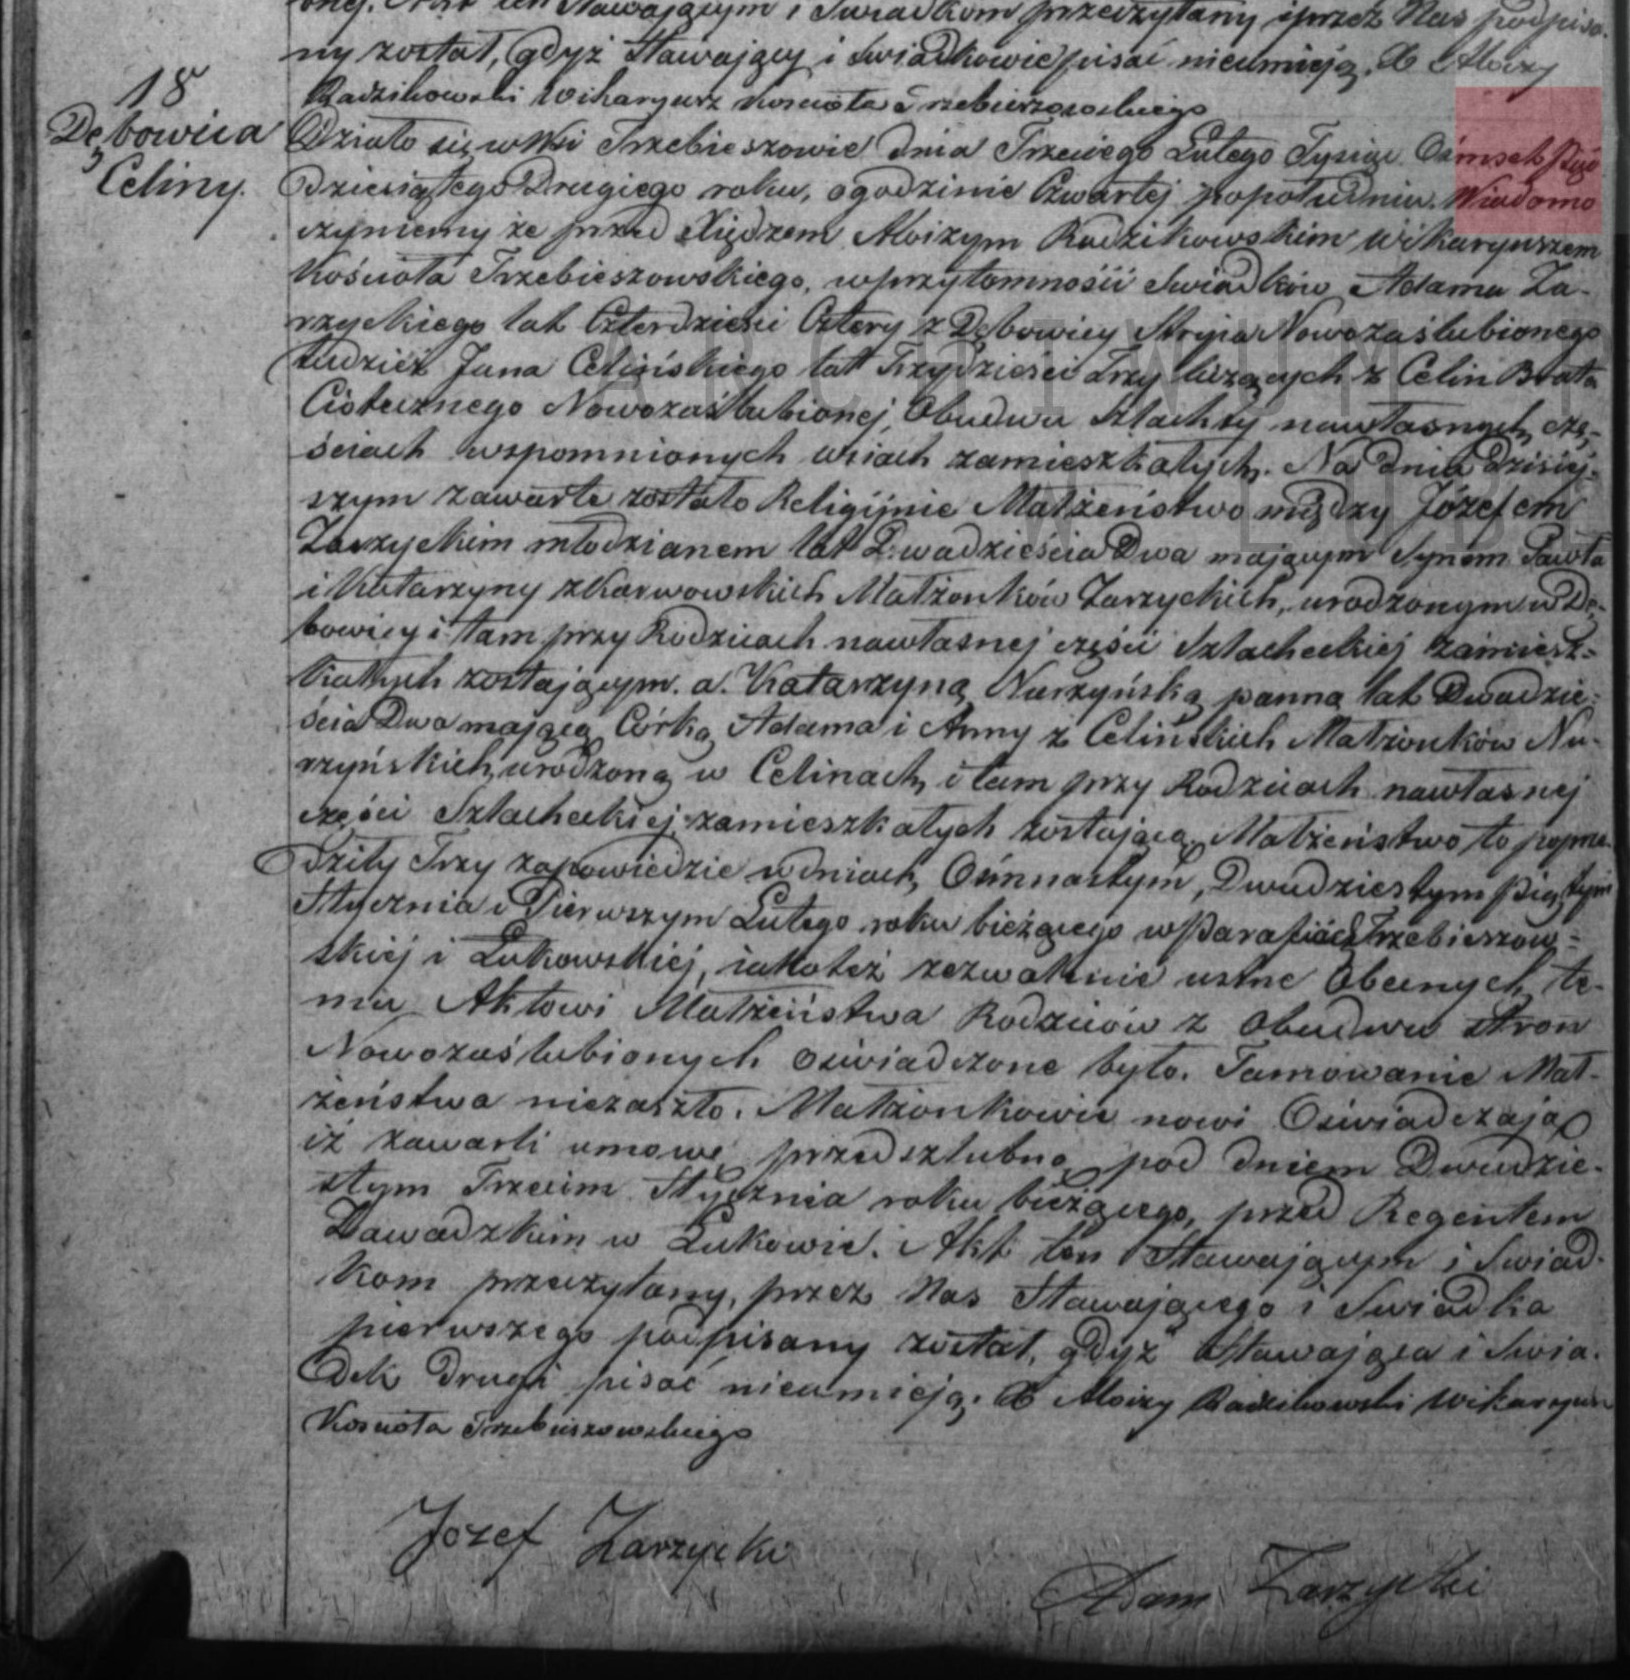 onej. Akt ten Stawającym i Swiadkom przeczytany i przez Nas podpisa-
ny został, gdyż Stawający i Swiadkowie pisać nieumieją. X Aloizy
Radzikowski Wikaryusz Koscioła Trzebieszowskiego
18
Dębowica
Celiny.
Działo się w Wsi Trzebieszowie dnia Trzeciego Lutego Tysiąc Ośmset Pięć
dziesiątego Drugiego roku, o godzinie Czwartej popołudniu. Wiadomo
czyniemy że przed Xiędzem Aloizym Radzikowskim Wikaryuszem
Kościoła Trzebieszowskiego, w przytomności Swiadków Adama Za-
rzyckiego lat Czterdzieści Cztery z Dębowicy Stryja Nowozaślubionego
tudzież Jana Celińskiego lat Trzydzieści Trzy liczących z Celin Brata
Ciotecznego Nowozaślubionej, Obudwu Szlachty na własnych czę-
ściach wspomnionych wsiach zamieszkałych. Na dniu dzisiej-
szym zawarte zostało Religijnie Małżeństwo między Józefem
Zarzyckim młodzianem lat Dwadzieścia Dwa mającym Synem Pawła
i Katarzyny z Karwowskich Małżonków Zarzyckich, urodzonym w Dę-
bowicy i tam przy Rodzicach na własnej części Szlacheckiej zamiesz-
kałych zostającym. a. Katarzyną Nurzyńską panną lat Dwadzie-
ścia Dwa mającą Córką Adama i Anny z Celińskich Małżonków Nu-
rzyńskich, urodzoną w Celinach, i tam przy Rodzicach na własnej
części Szlacheckiej zamieszkałych zostającą. Małżeństwo to poprze-
dziły Trzy zapowiedzie w dniach, Ośmnastym, Dwudziestym Piątym
Stycznia i Pierwszym Lutego roku bieżącego w Parafiiach Trzebieszow-
skiej i Łukowskiej, iakoteż zezwolenie ustne Obecnych te-
mu Aktowi Małżeństwa Rodziców z Obudwu stron
Nowozaślubionych oświadczone było. Tamowanie Mał-
żeństwa niezaszło. Małżonkowie nowi Oświadczają
iż zawarli umowę przedszlubną pod dniem Dwudzie-
stym Trzecim Stycznia roku bieżącego, przed Regentem
Zawadzkim w Łukowie. Akt ten Stawającym i Swiad-
kom przeczytany, przez Nas Stawającego i Swiadka
pierwszego podpisany został, gdyż Stawająca i Swia-
dek drugi pisać nieumieją. X Aloizy Radzikowski Wikaryusz
Koscioła Trzebieszowskiego
Jozef Zarzycki
Adam Zarzycki